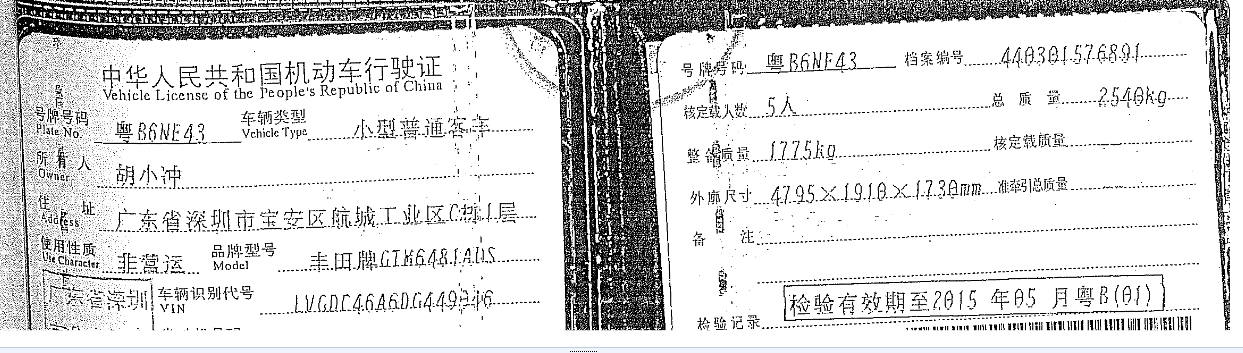 中华人民共和国机动车行驶证
Vehicle License of the People's Republic of China
号牌号码 粤B6NE43 车辆类型 小型普通客车
Plate No. Vehicle Type
所有人 胡小冲
Owner
住址 广东省深圳市宝安区航城工业区C栋1层
Address
使用性质 非营运 品牌型号 丰田牌GTM6481ADS
Use Character Model
广东省深圳 车辆识别代号
VIN
号牌号码 粤B6NE43 档案编号 440301576891
核定载人数 5人 总质量 2540kg
整备质量 1775kg 核定载质量
外廓尺寸 4795×1910×1730mm 准牵引总质量
备注
检验有效期至2015年05月粤B(01)
检验记录